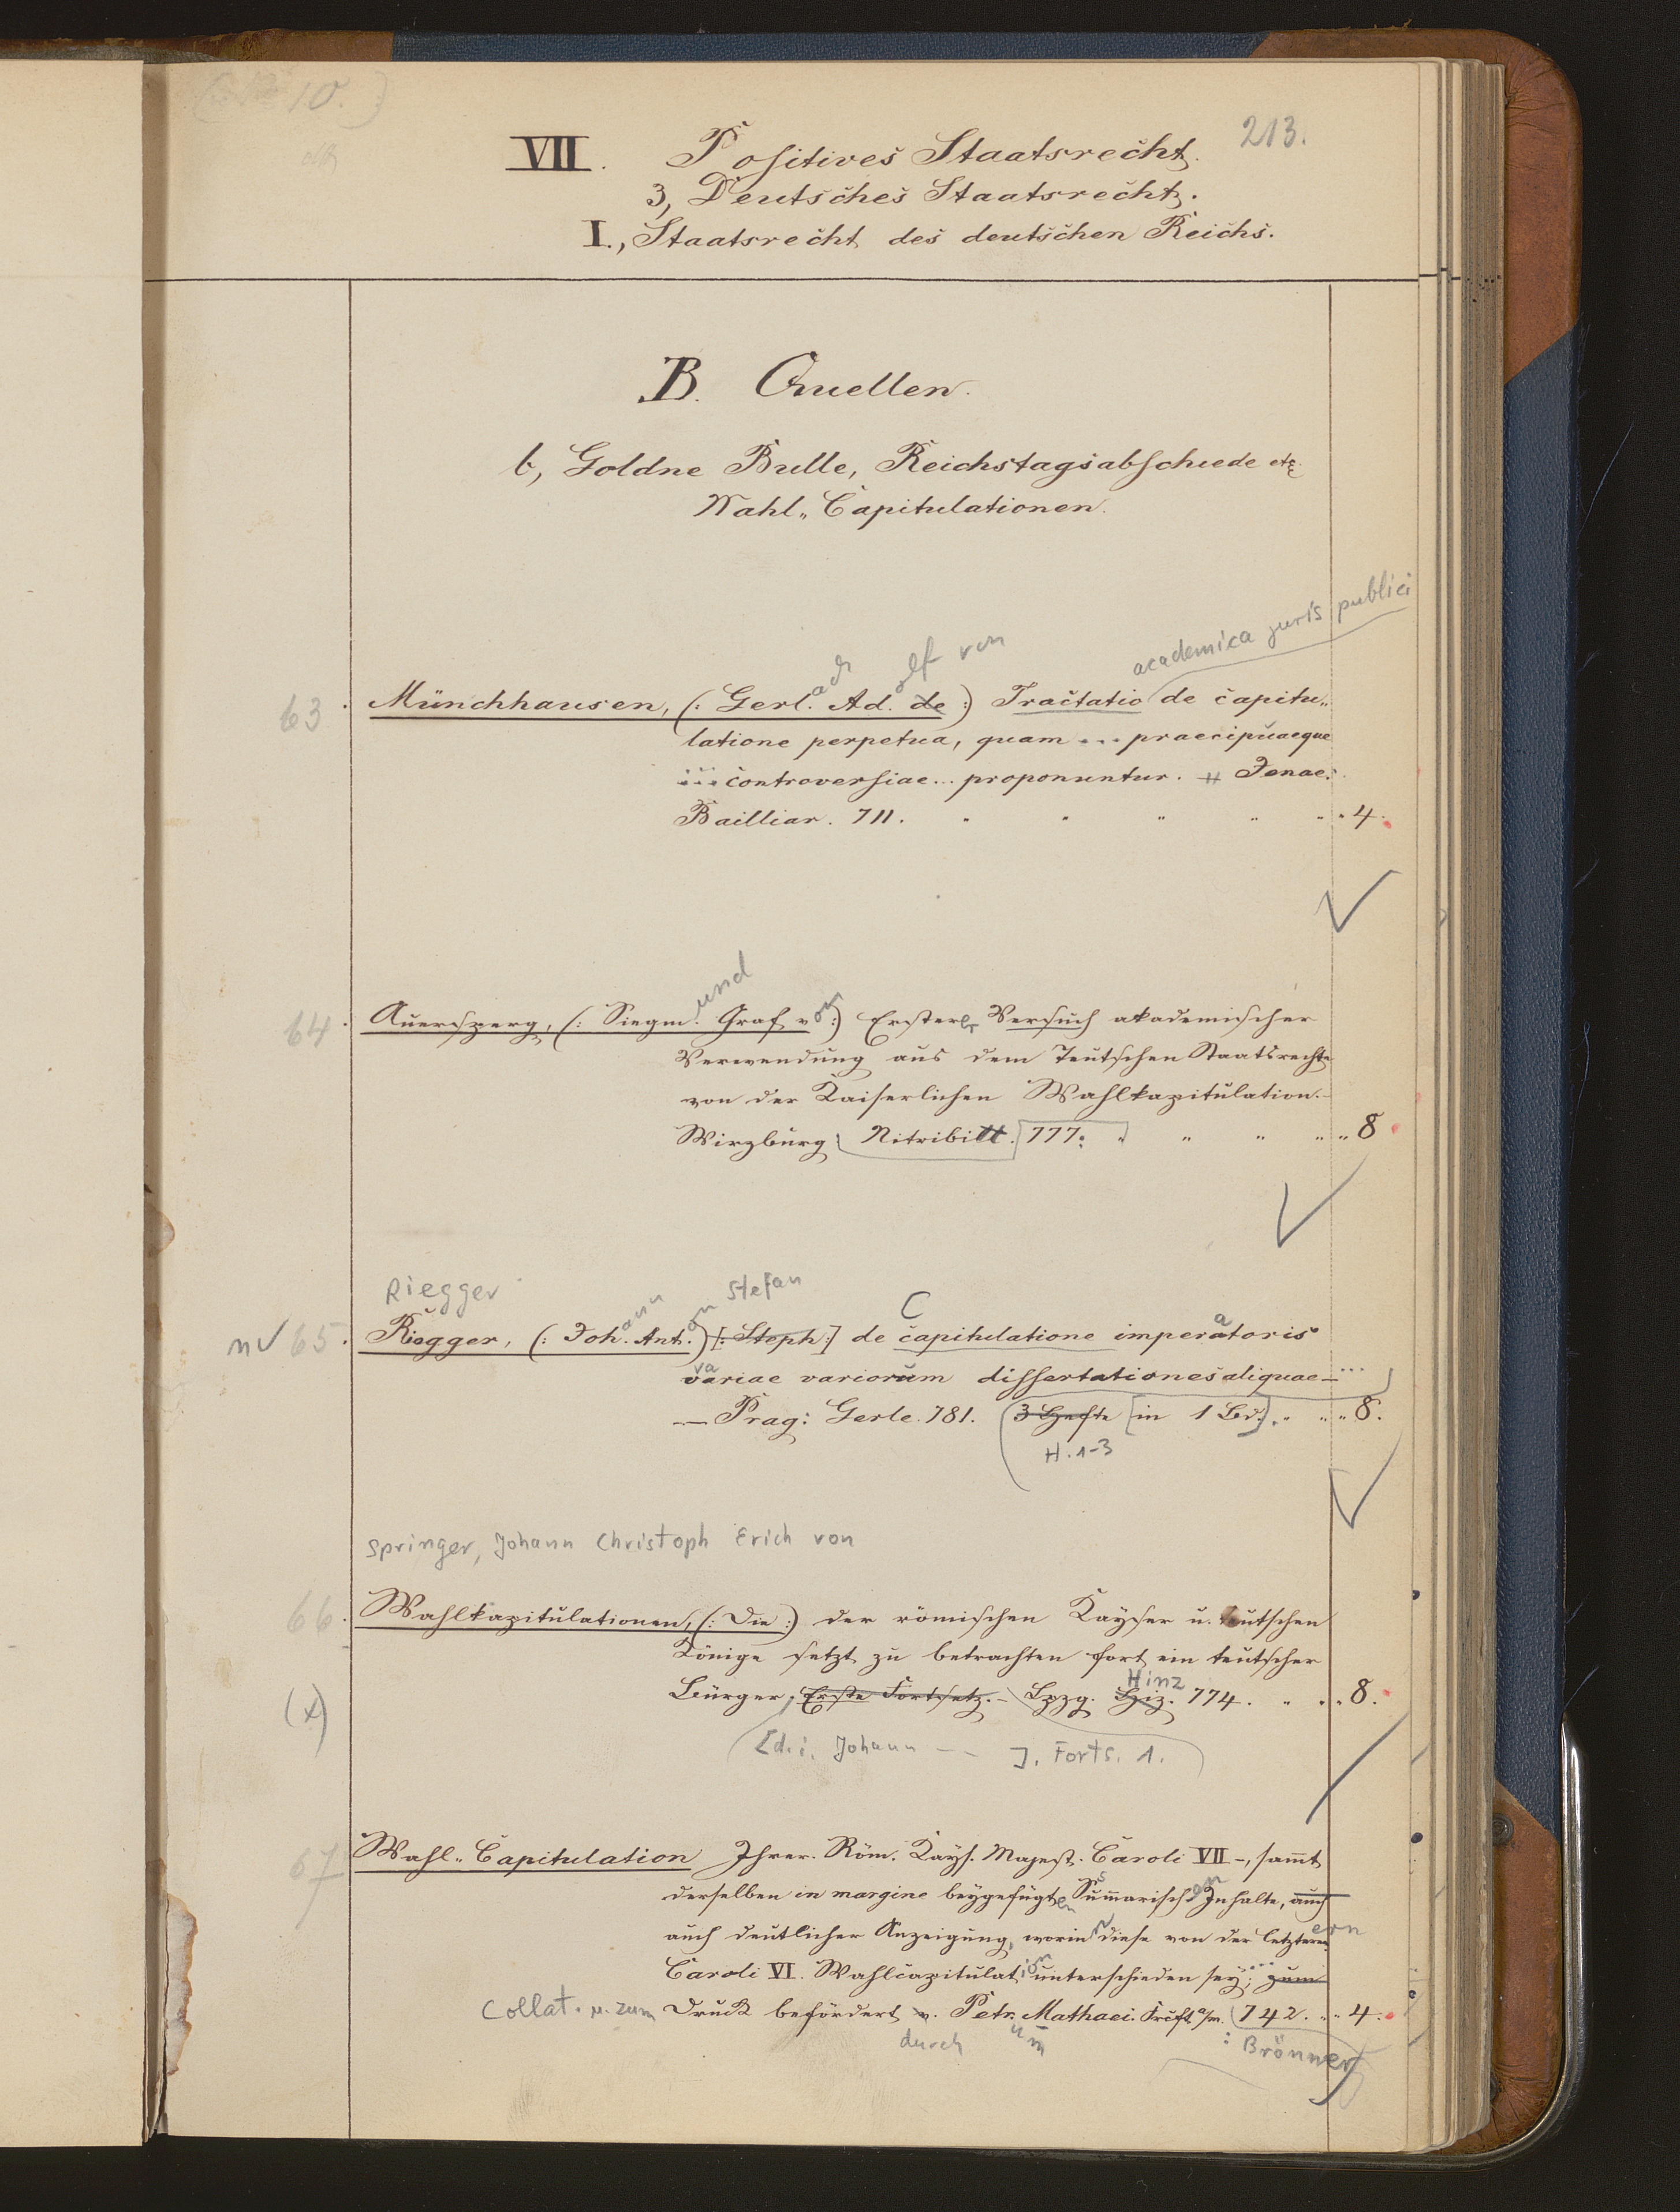 10.
213.
VII. Positives Staatsrecht.
3, Deutsches Staatsrecht.
I., Staatsrecht des deutschen Reichs.
B. Quellen.
b, Goldne Bulle, Reichstagsabschiede etc.
Wahl„Capitulationen.
academica juris publici
ach olf von
63. Münchhausen, (: Gerl. Ad. de :) Tractatio de capitu„
latione perpetua, quam ... praecipuaeque
... controversiae ... proponuntur. Jenae.
Bailliar. 711. 4.
und
64. Auersperg, (: Siegm. Graf von :) Erster Versuch akademischer
Verwendung aus dem Teutschen Staatsrechte
von der Kaiserlichen Wahlkapitulation.
Wirzburg: Nitribitt. 777. 8
Riegger ann on Stefan C
n 65. Riegger, (: Joh. Ant.) [: Steph :] de capitulatione imperatoris
variae variorum dissertationes aliquae - ...
— Prag: Gerle. 781. (3 Hefte [in 1 Bd.] 8.
H. 1-3
Springer, Johann Christoph Erich von
66. Wahlkapitulationen, (: Die :) der römischen Kayser u. teutschen
Könige setzt zu betrachten fort ein teutscher
Hinz
(x) Bürger, Erste Fortsetz. - Lpzg. Hiz. 774. 8.
[d. i. Johann -- ]. Forts. 1.
67 Wahl„Capitulation Ihrer. Röm. Kays. Majest. Caroli VII -, samt
derselben in margine beygefügten Summarischen Inhalte, auch
auch deutlicher Anzeigung, worin diese von der letzteren
ern
Caroli VI. Wahlcapitulation unterschieden sey; ... zum
Collat. u. zum Druck befördert v. Petr. Mathaei. Frcft a/m. 742. 4.
durch um : Brönner